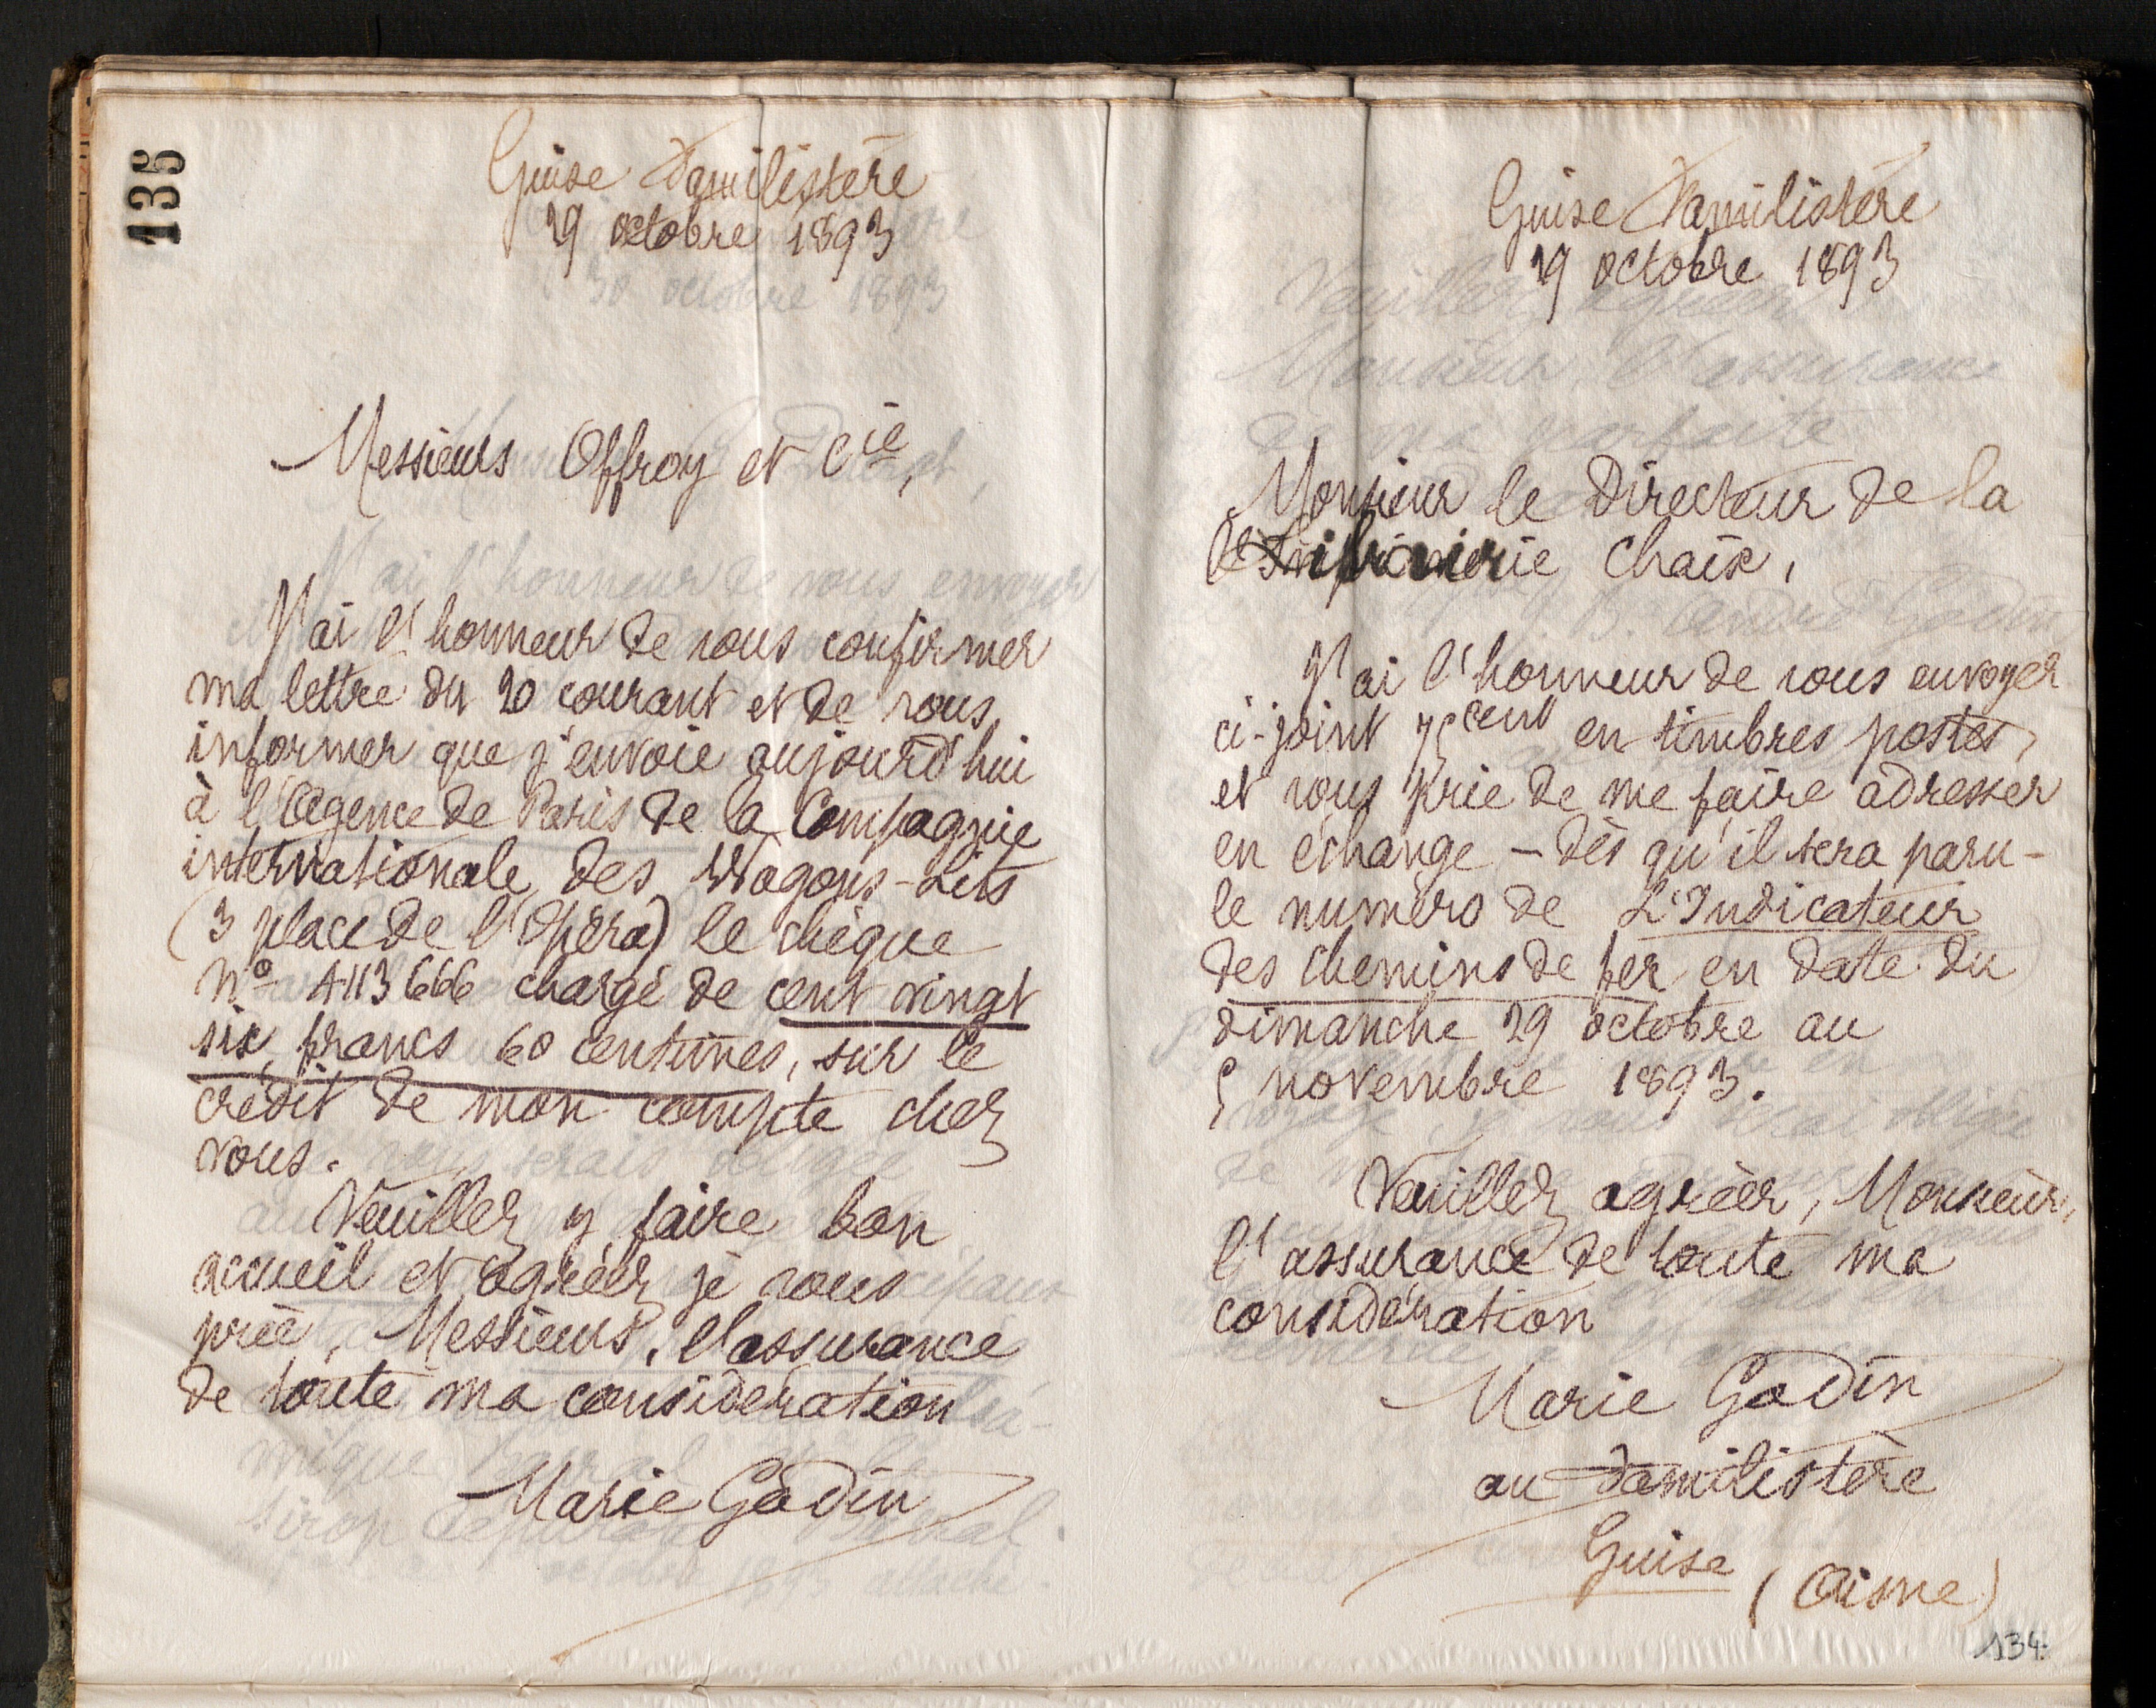 135
Guise Familistère
29 octobre 1893
Messieurs Offroy et Cie,
J'ai l'honneur de vous confirmer
ma lettre du 20 courant et de vous
informer que j'envoie aujourd'hui
à l'Agence de Paris de la Compagnie
internationale des Wagons-Lits
(3 place de l'Opéra) le chèque
No 4113666 chargé de cent vingt
six francs 60 centimes, sur le
crédit de mon compte chez
vous.
Veuillez y faire bon
accueil et agréer je vous
prie, Messieurs, l'assurance
de toute ma considération
Marie Godin
Guise Familistère
29 octobre 1893
Monsieur le Directeur de la
Imprimerie Chaix,
J'ai l'honneur de vous envoyer
ci-joint 75 cent en timbres postes,
et vous prie de me faire adresser
en échange – dès qu'il sera paru –
le numéro de L'Indicateur
des chemins de fer en date du
dimanche 29 octobre au
5 novembre 1893.
Veuillez agréer, Monsieur,
l'assurance de toute ma
considération
Marie Godin
au Familistère
Guise (Aisne)
134.